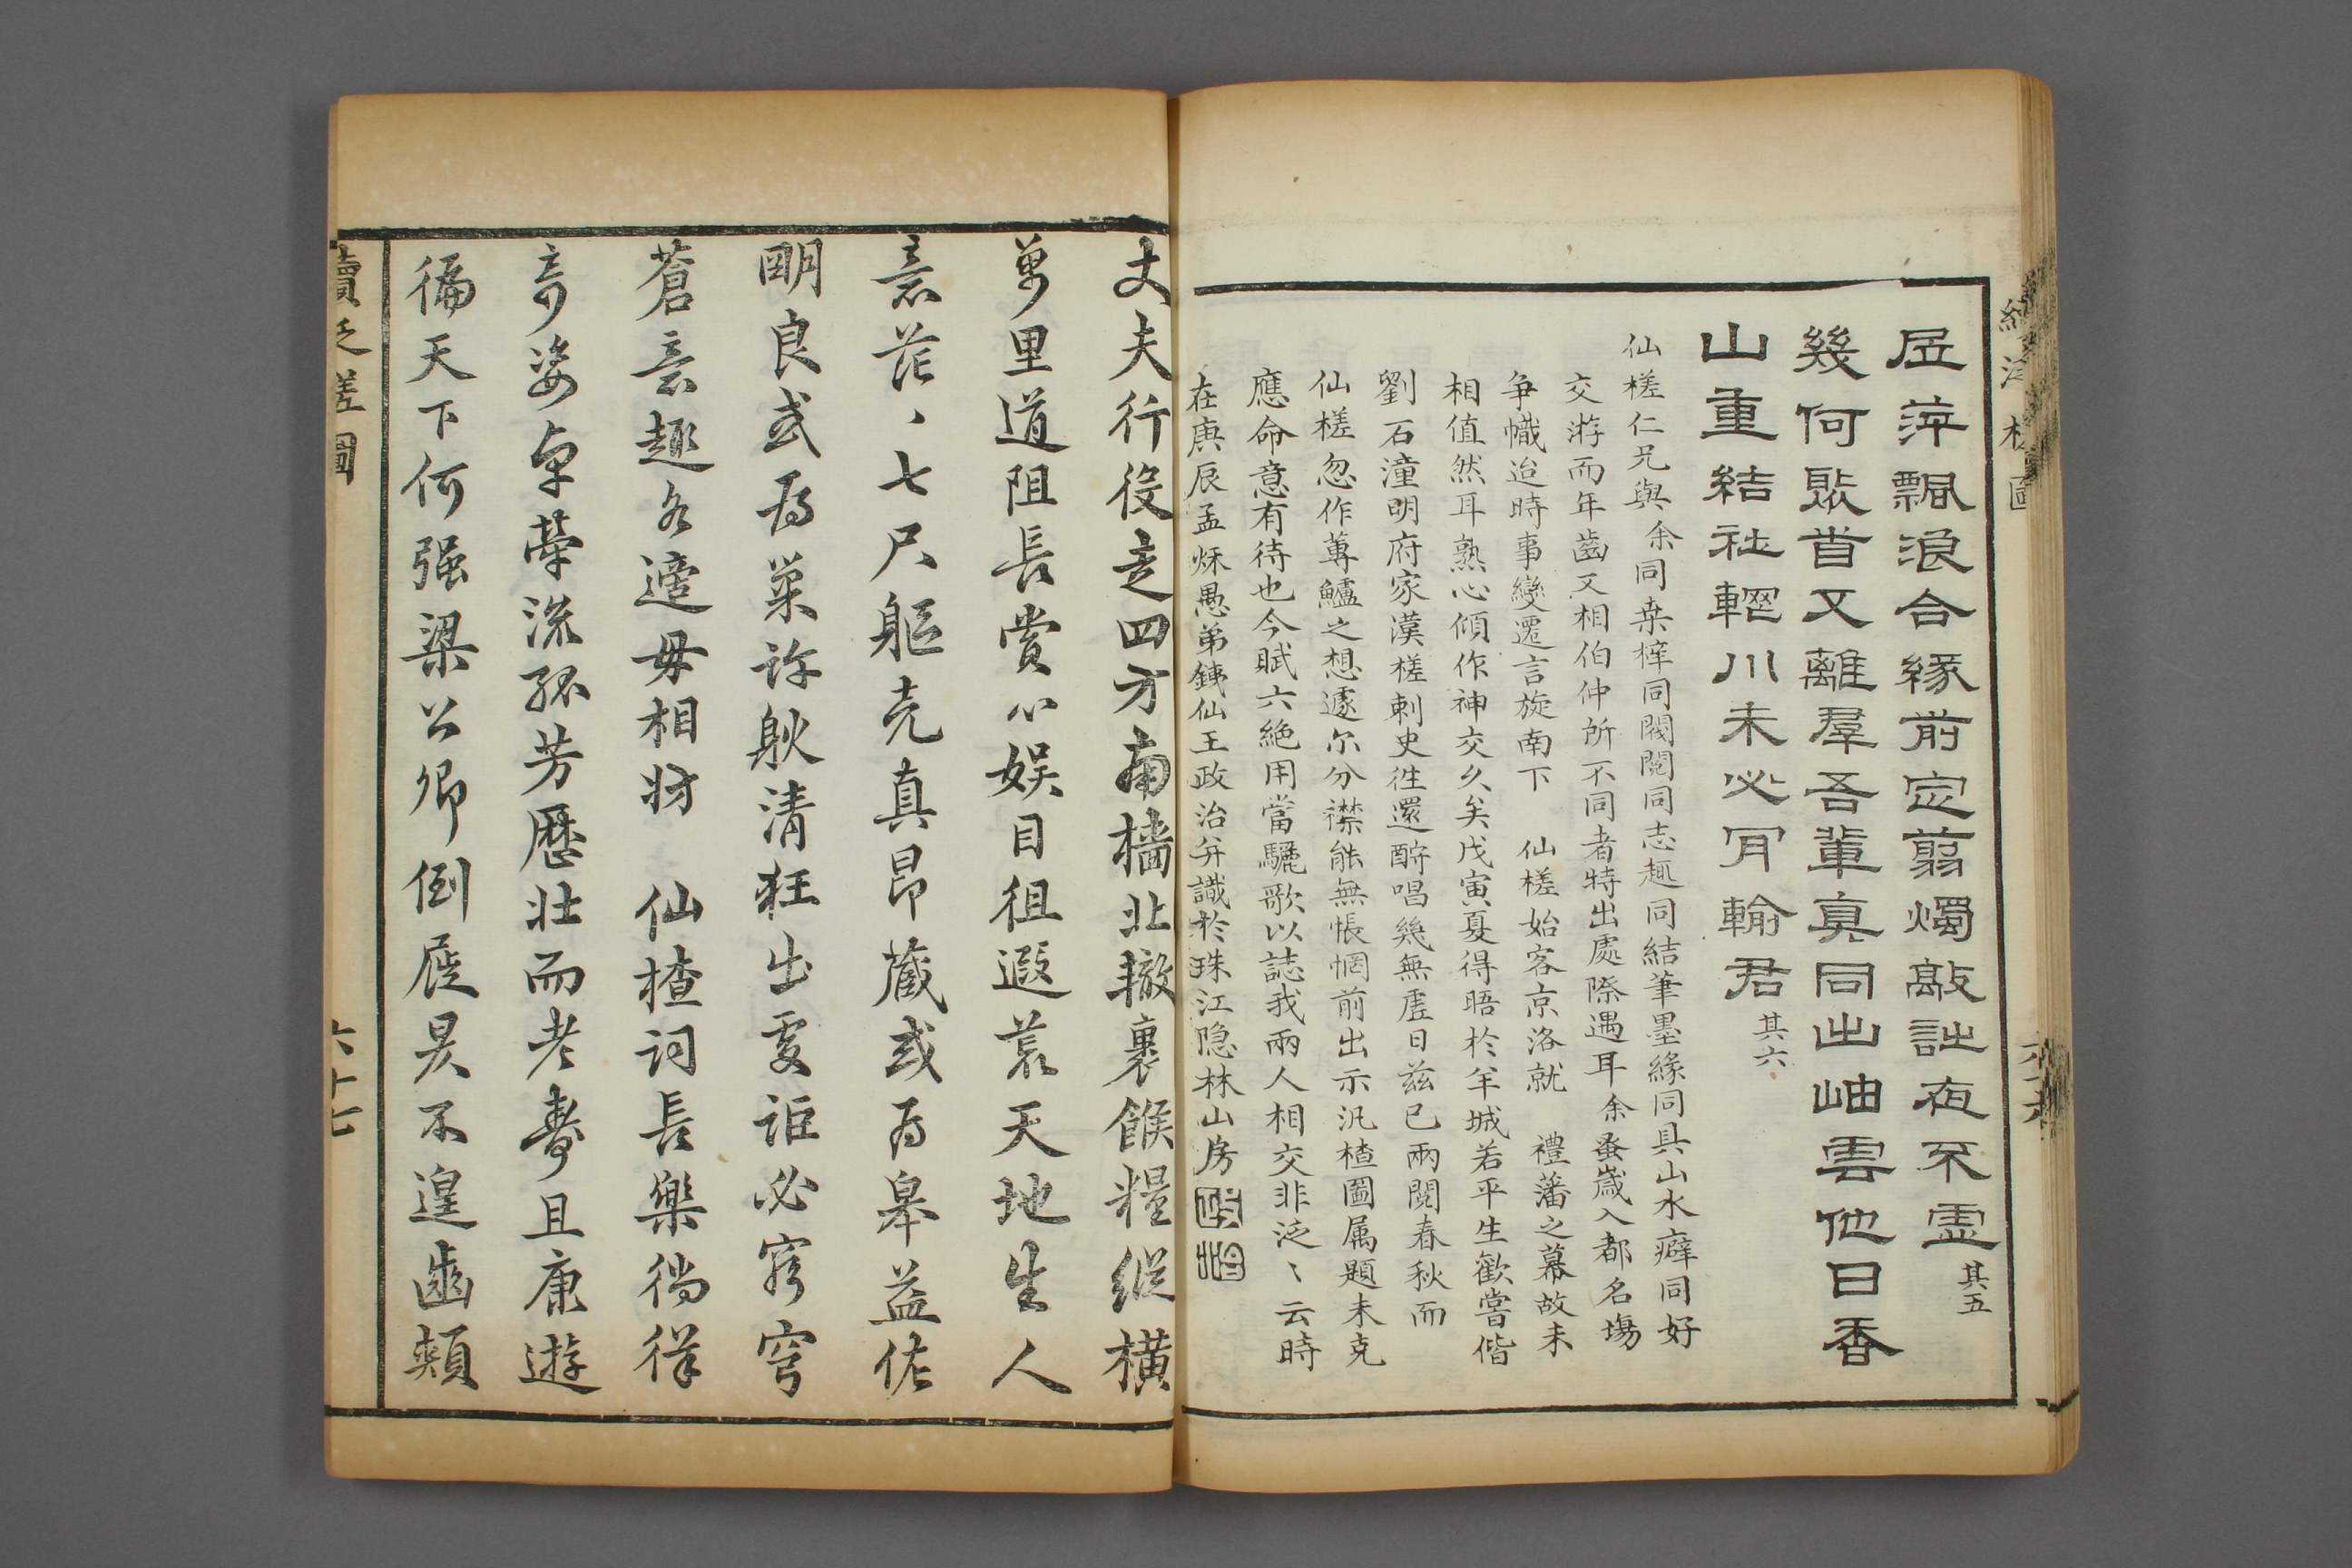 萍飄浪合緣前定翦燭敲詩夜不 其五
幾何歡首又離羣吾輩真同出岫雲他日香
山重結社輞川未必肎輸君 其六
仙槎仁兄與余同桑梓同閥閱同志趣同結筆墨緣同具山水癖同好
交游而年齒又相伯仲所不同者特出處際遇耳余蚤歲入都名塲
争幟迨時事變遷言旋南下 仙槎始客京洛就 禮藩之幕故未
相值然耳熟心傾作神交久矣戊寅夏得晤於羊城若平生歡嘗偕
劉石潼明府家漢槎刺史徃還酧唱幾無虛日兹已兩閱春秋而
仙槎忽作蓴鱸之想遽尔分襟能無悵惘前出示汎楂圖属題未克
應命意有待也今賦六絶用當驪歌以誌我兩人相交非泛〻云時
在庚辰孟秌愚弟銕仙王政治弁識於珠江隐林山房
丈夫行役走四方南檣北轍裹餱糧縱橫
萬里道阻長賞心娱目徂遐荒天地生人
意茫〻七尺軀克真昂藏或為皋益佐
明良或為巢許耿清狂出處詎必窮穹
蒼意趣各適毋相妨 仙楂詞長樂徜徉
奇姿卓犖流孤芳歷壮而老壽且康遊
徧天下何强梁公卿倒屐昃不遑齒頰
續泛槎圖
六十七